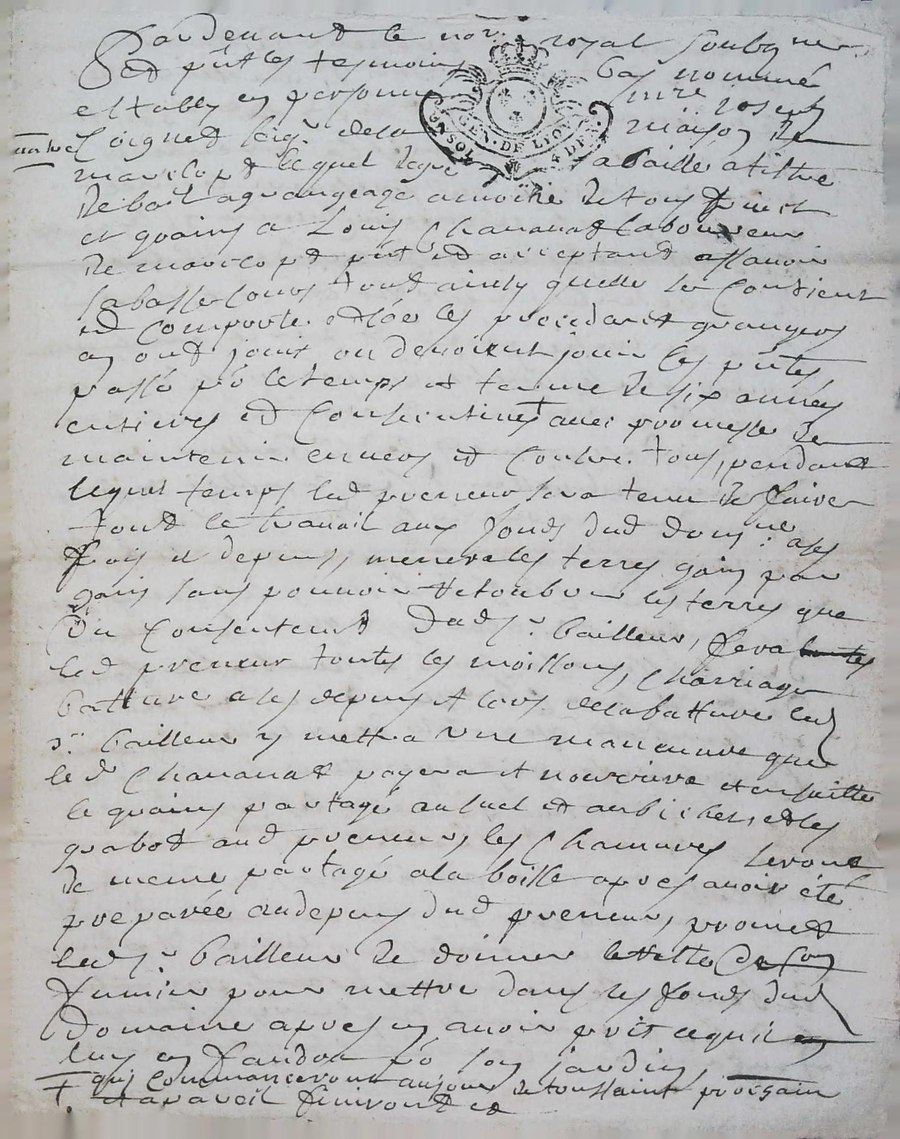 Pardevant le no.re royal soubsigné
Et p.nt les tesmoins bas nommé
estably en personne mre Joseph
Coignet seig.r dela maison de
marclopt lequel de gré a baillé a tiltre
de bail a grangeage a moitié de tous fruict
et grains a Louis Chavanat laboureur
de marclopt p.nt et acceptant assavoir
la basse cour tout ainsy quelle se contient
et comporte et les precedant grangers
en ont jouis ou devoient jouir les p.ntes
passé p.r le temps et terme de six années
entieres et consecutives + avec promesse de
maintenir envers et contre tous, pendant
lequel temps led preneur sera tenu de faire
tout le travail aux fonds dud dom.ne a ses
frais et depens, menera les terres gain par
gain sans pouvoir les terres que
du consentem.t dud s.r bailleur, fera
led preneur toutes les moissons, charriage
batture a ses depens et lors dela batture led
s.r bailleur y mettra une manœuvre que
led Chavanat payera et nourrira et ensuitte
le grains partagé au suel et au bichet, et les
grabot aud preneur, les chanvres seront
de meme partagé a la boille apres avoir été
preparée au depens dud preneur, promet
led s.r bailleur de donner le reste de son
fumier pour mettre dans les fonds dud
Domaine apres en avoir prit ce quil
luy en faudra p.r son jardin,
+ qui commanceront au jour de toussaint prochain
et a pareil finiront et